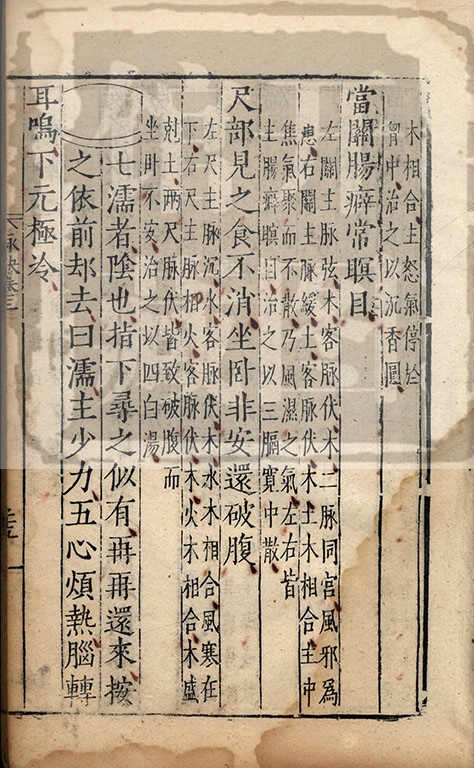 木相合主怒氣停於
胃中治之以沉香圓
當關腸癖常瞑目
左關主脉弦木客脉伏木二脉同宮風邪爲
患右關主脉緩土客脉伏木土木相合主中
焦氣聚而不散乃風濕之氣左右皆
主腸癖瞑目治之以三膈寛中散
尺部見之食不消坐卧非安還破腹
左尺主脉沉水客脉伏木水木相合風寒在
下右尺主脉相火客脉伏木火木相合木盛
尅土两尺脉伏皆致破腹而
坐卧不安治之以四白湯
七濡者隂也指下尋之似有再再還來按
之依前却去曰濡主少力五心煩熱腦轉
耳鳴下元極冷
脉訣卷三